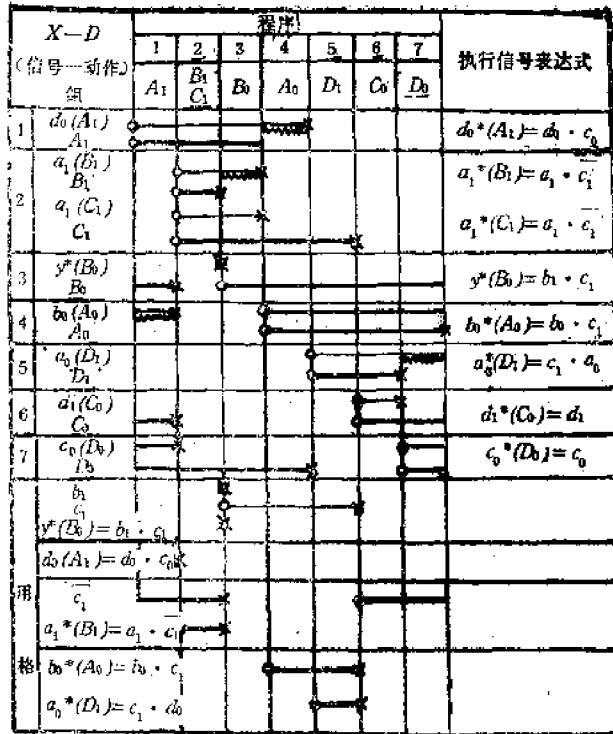 X—D
(信号—动作)
组
程序
1 2 3 4 5 6 7
A₁ B₁ C₁ B₀ A₀ D₁ C₀ D₀
执行信号表达式
1 d₀(A₁)
A₁
d₀*(A₁)=d₀·c₀
2 a₁(b₁)
B₁
a₁*(B₁)=a₁·c̄₁
a₁(C₁)
C₁
a₁*(C₁)=a₁·c̄₁
3 y*(B₀)
B₀
y*(B₀)=b₁·c₁
4 b₀(A₀)
A₀
b₀*(A₀)=b₀·c₁
5 a₀(D₁)
D₁
a₀*(D₁)=c₁·a₀
6 d₁(C₀)
C₀
d₁*(C₀)=d₁
7 c₀(D₀)
D₀
c₀*(D₀)=c₀
用
格
b₁
c₁
y*(B₀)=b₁·c₁
d₀(A₁)=d₀·c₀
c̄₁
a₁*(B₁)=a₁·c̄₁
b₀*(A₀)=b₀·c₁
a₀*(D₁)=c₁·d₀